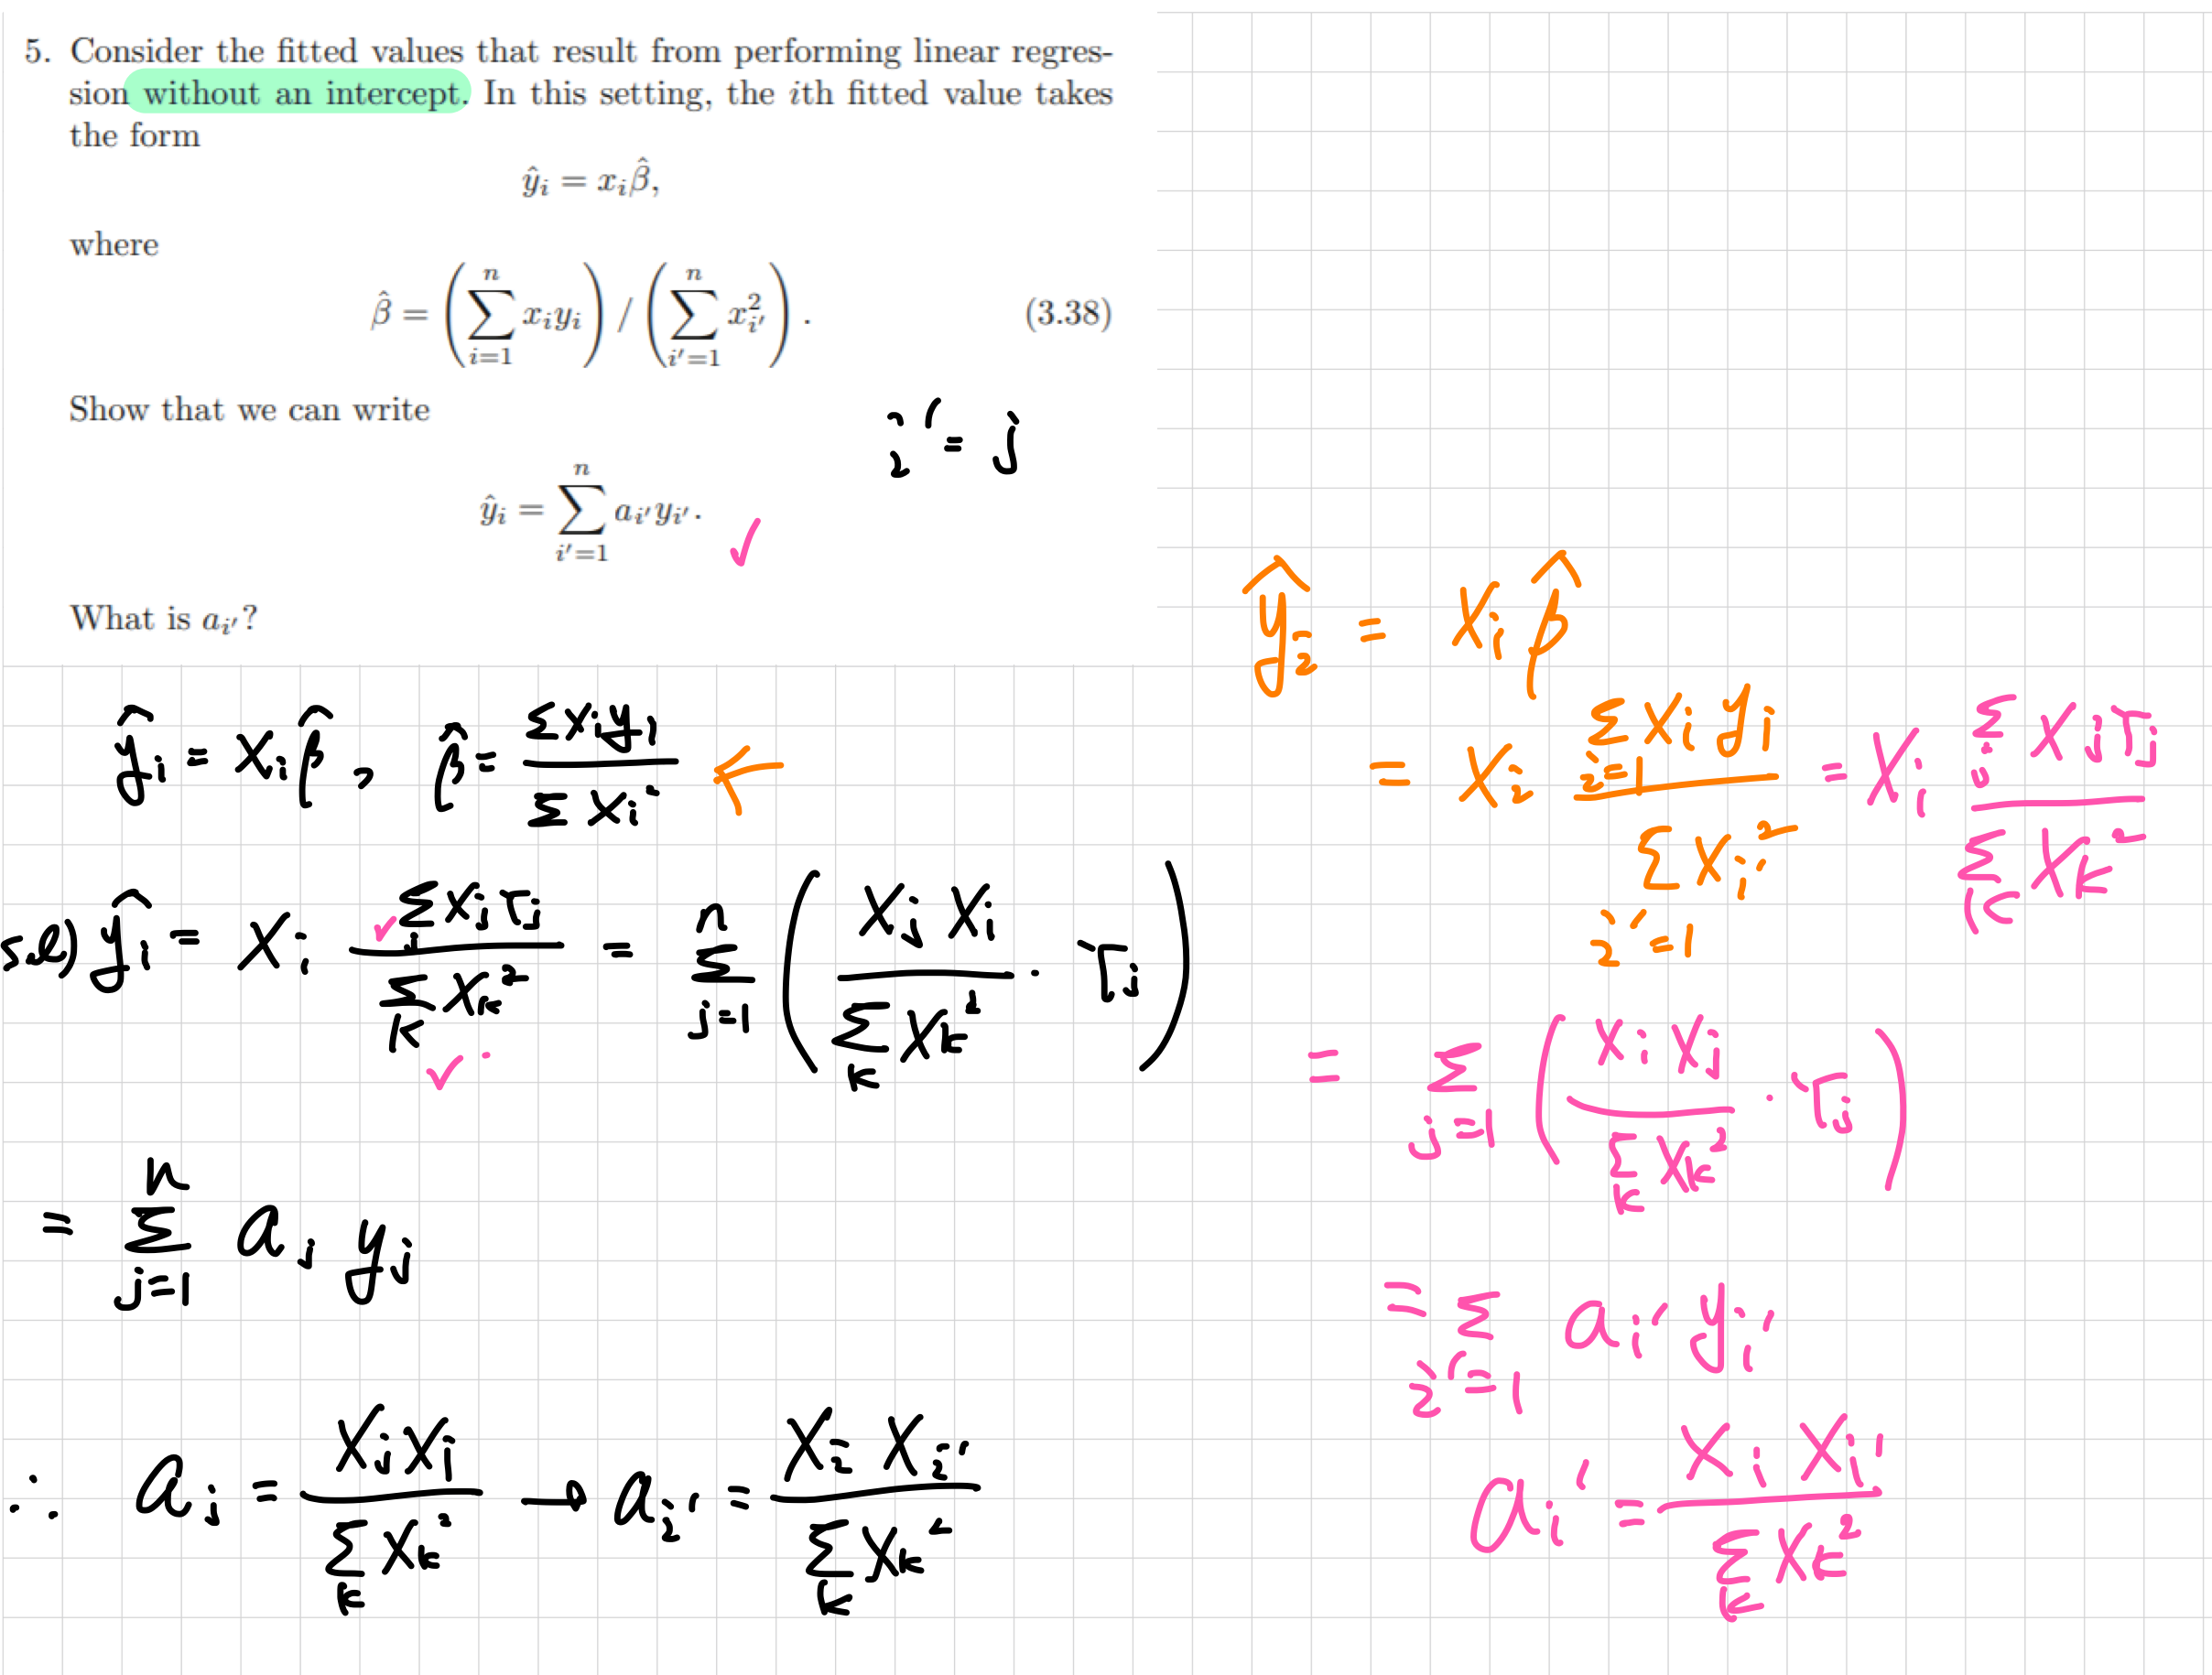 5. Consider the fitted values that result from performing linear regres-
sion without an intercept. In this setting, the ith fitted value takes
the form
ŷᵢ = xᵢβ̂,
where
β̂ = (∑ⁿᵢ₌₁ xᵢyᵢ) / (∑ⁿᵢ′₌₁ x²ᵢ′). (3.38)
Show that we can write
i′ = j
ŷᵢ = ∑ⁿᵢ′₌₁ aᵢ′yᵢ′. ✓
What is aᵢ′?
ŷᵢ = xᵢβ̂, β̂ = ∑xᵢyᵢ / ∑xᵢ² ←
sol) ŷᵢ = xᵢ ∑ⱼ xⱼyⱼ / ∑ₖ xₖ² = ∑ⁿⱼ₌₁ (xⱼxᵢ / ∑ₖ xₖ² · yⱼ)
= ∑ⁿⱼ₌₁ aⱼ yⱼ
∴ aⱼ = xⱼxᵢ / ∑ₖ xₖ² → aᵢ′ = xᵢ xᵢ′ / ∑ₖ xₖ²
ŷᵢ = xᵢ β̂
= xᵢ ∑ᵢ₌₁ xᵢ yᵢ / ∑ᵢ′₌₁ xᵢ′² = xᵢ ∑ⱼ xⱼyⱼ / ∑ₖ xₖ²
= ∑ⱼ₌₁ (xᵢxⱼ / ∑ₖ xₖ² · yⱼ)
= ∑ᵢ′₌₁ aᵢ′ yᵢ′
aᵢ′ = xᵢ xᵢ′ / ∑ₖ xₖ²